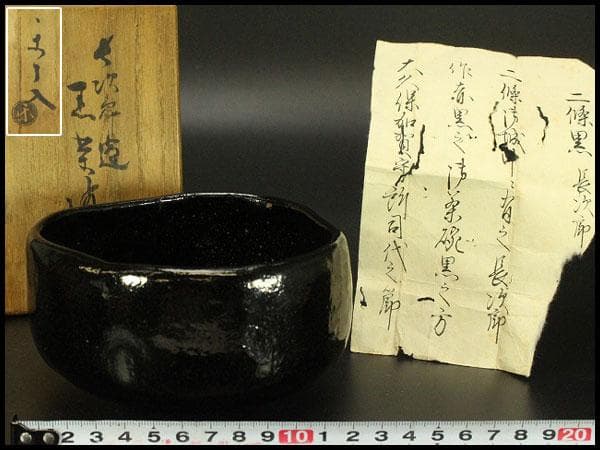 二條黒 長次郎
二條御城ニ有之 長次郎
作赤黒之御茶碗黒之方
大久保加賀守所司代之節
長次郎造
黒茶
了入
2 3 4 5 6 7 8 9 10 1 2 3 4 5 6 7 8 9 20